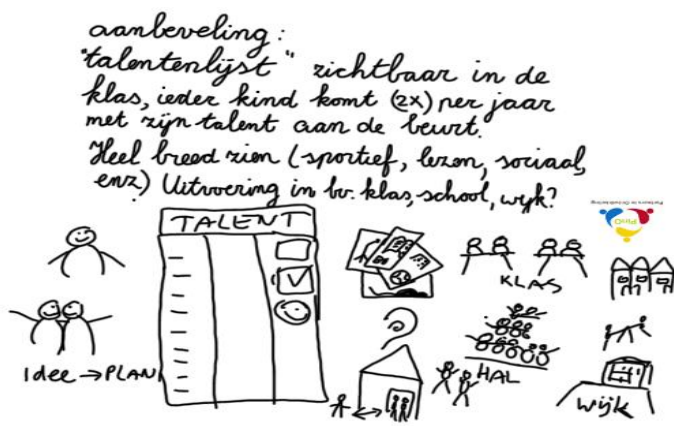 aanbeveling:
"talentenlijst" zichtbaar in de
klas, ieder kind komt (2x) per jaar
met zijn talent aan de beurt.
Heel breed zien (sportief, lezen, sociaal,
enz.) Uitvoering in bv. klas, school, wijk?
Partners in Ontwikkeling
PinO
TALENT
KLAS
Idee → PLAN
HAL
wijk